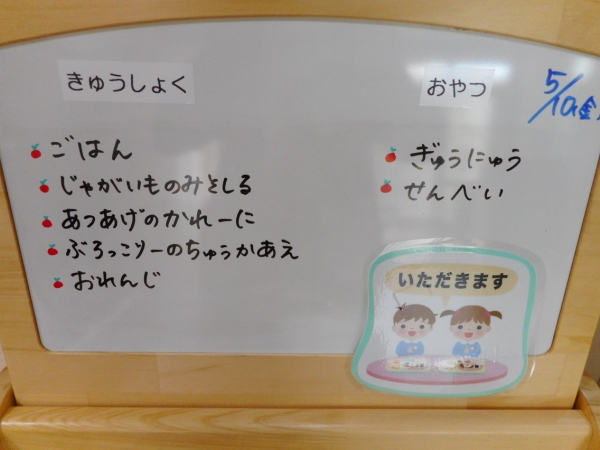 きゅうしょく
ごはん
じゃがいものみそしる
あつあげのかれーに
ぶろっこりーのちゅうかあえ
おれんじ
おやつ
5/10(金)
ぎゅうにゅう
せんべい
いただきます